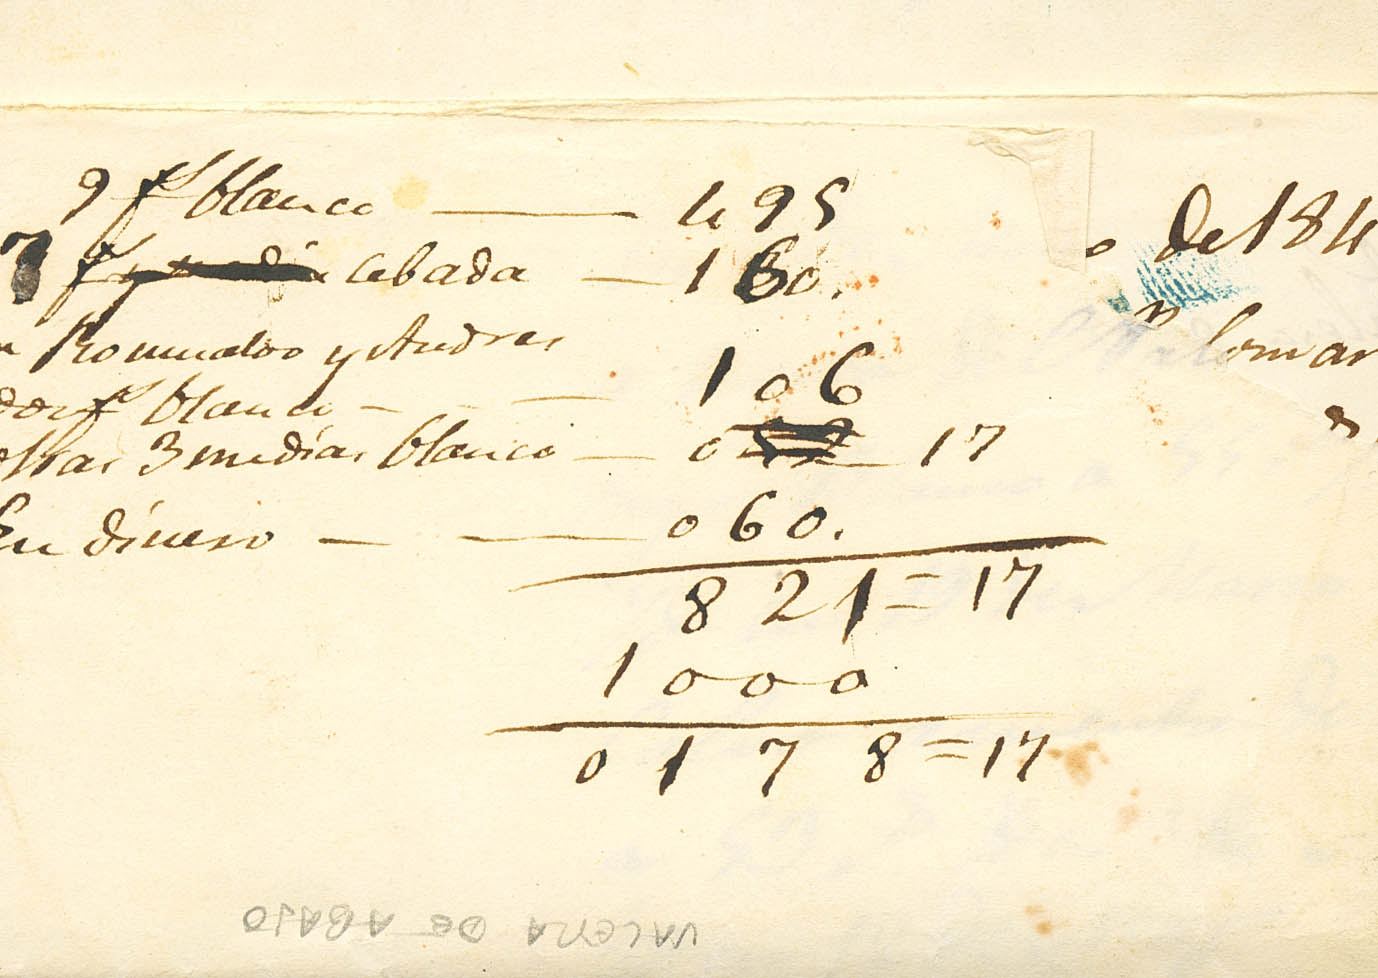 9 f.s blanco — 495
7 f.s cebada — 160.
Romualdo y Andres
dos f.s blanco - - — 106
otras 3 medias blanco — 0 17
En dinero — — 060.
821=17
1000
0178=17
de 184
VALERA DE ABAJO